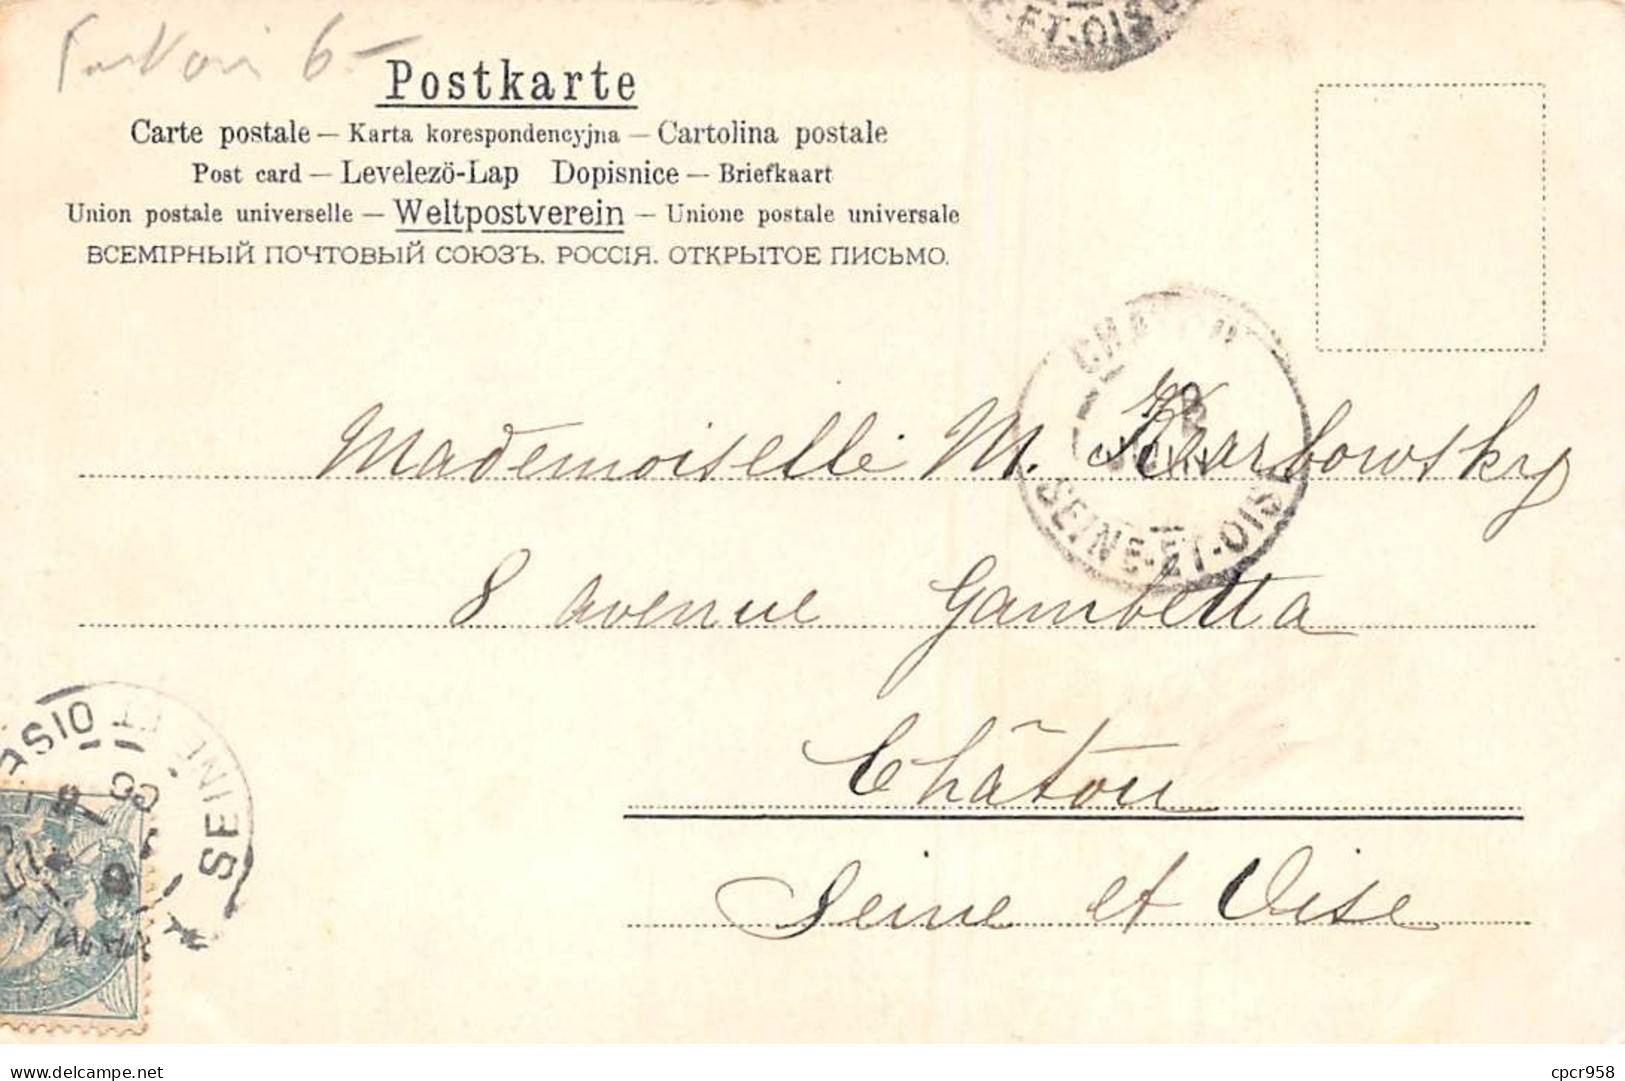 6-
Postkarte
Carte postale — Karta korespondencyjna — Cartolina postale
Post card — Levelezö-Lap Dopisnice — Briefkaart
Union postale universelle — Weltpostverein — Unione postale universale
ВСЕМІРНЫЙ ПОЧТОВЫЙ СОЮЗЪ. РОССІЯ. ОТКРЫТОЕ ПИСЬМО.
SEINE-ET-OISE
Mademoiselle M. Karbowsky
8 avenue Gambetta
Châtou
Seine et Oise
cpcr958